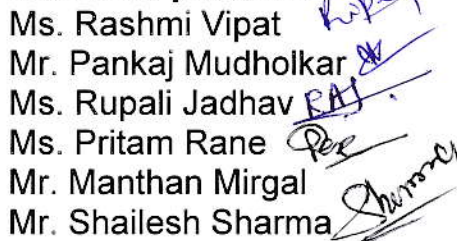 Ms. Rashmi Vipat
Mr. Pankaj Mudholkar
Ms. Rupali Jadhav RAJ
Ms. Pritam Rane
Mr. Manthan Mirgal
Mr. Shailesh Sharma Sharma